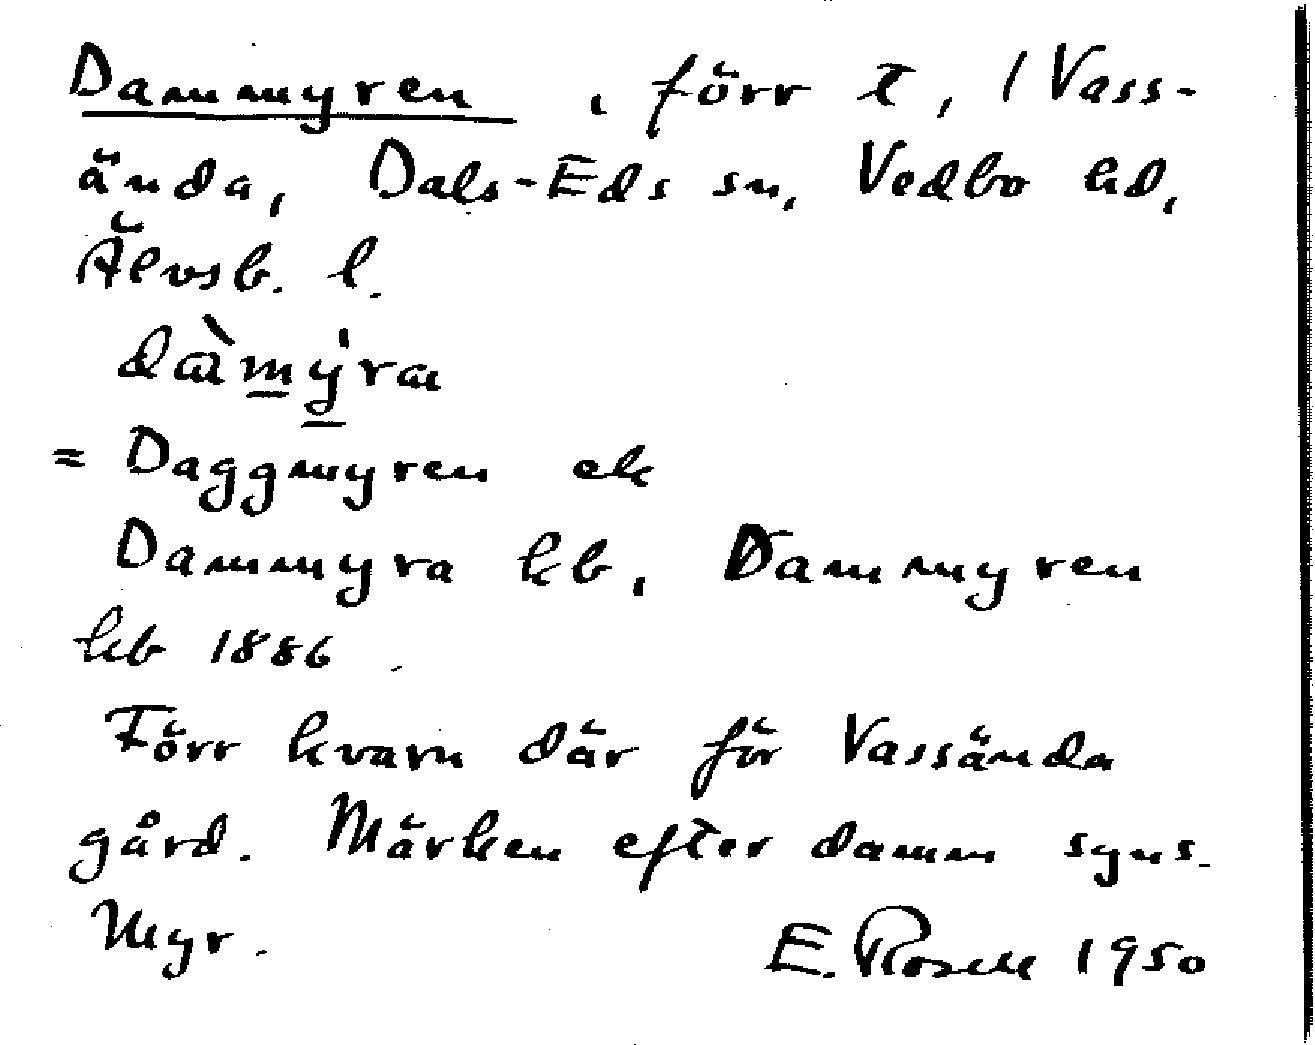 Dammyren, förr t, 1 Vass-
ända, Dals-Eds sn, Vedbo hd,
Älvsb. l.
dàmýra
= Daggmyren ek
Dammyra kb, Dammyren
hb 1886.
Förr kvarn där för Vassända
gård. Märken efter damm syns.
Myr. E. Rosell 1950